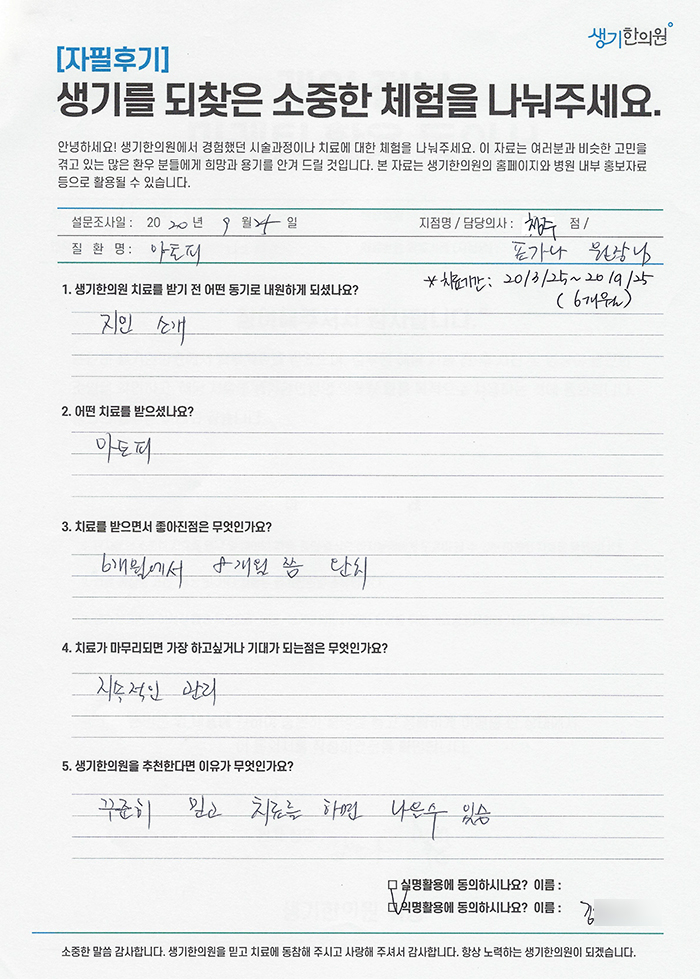 생기한의원
[자필후기]
생기를 되찾은 소중한 체험을 나눠주세요.
안녕하세요! 생기한의원에서 경험했던 시술과정이나 치료에 대한 체험을 나눠주세요. 이 자료는 여러분과 비슷한 고민을
겪고 있는 많은 환우 분들에게 희망과 용기를 안겨 드릴 것입니다. 본 자료는 생기한의원의 홈페이지와 병원 내부 홍보자료
등으로 활용될 수 있습니다.
설문조사일 : 20 20 년 9 월 25 일 지점명 / 담당의사 : 청주 점 /
질 환 명 : 아토피 표가나 원장님
* 치료기간 : 20/3/25~20/9/25
(6개월)
1. 생기한의원 치료를 받기 전 어떤 동기로 내원하게 되셨나요?
지인 소개
2. 어떤 치료를 받으셨나요?
아토피
3. 치료를 받으면서 좋아진점은 무엇인가요?
6개월에서 8개월 쯤 완치
4. 치료가 마무리되면 가장 하고싶거나 기대가 되는점은 무엇인가요?
지속적인 관리
5. 생기한의원을 추천한다면 이유가 무엇인가요?
꾸준히 믿고 치료를 하면 나을수 있슴
□ 실명활용에 동의하시나요? 이름 :
□ 익명활용에 동의하시나요? 이름 : 김
소중한 말씀 감사합니다. 생기한의원을 믿고 치료에 동참해 주시고 사랑해 주셔서 감사합니다. 항상 노력하는 생기한의원이 되겠습니다.